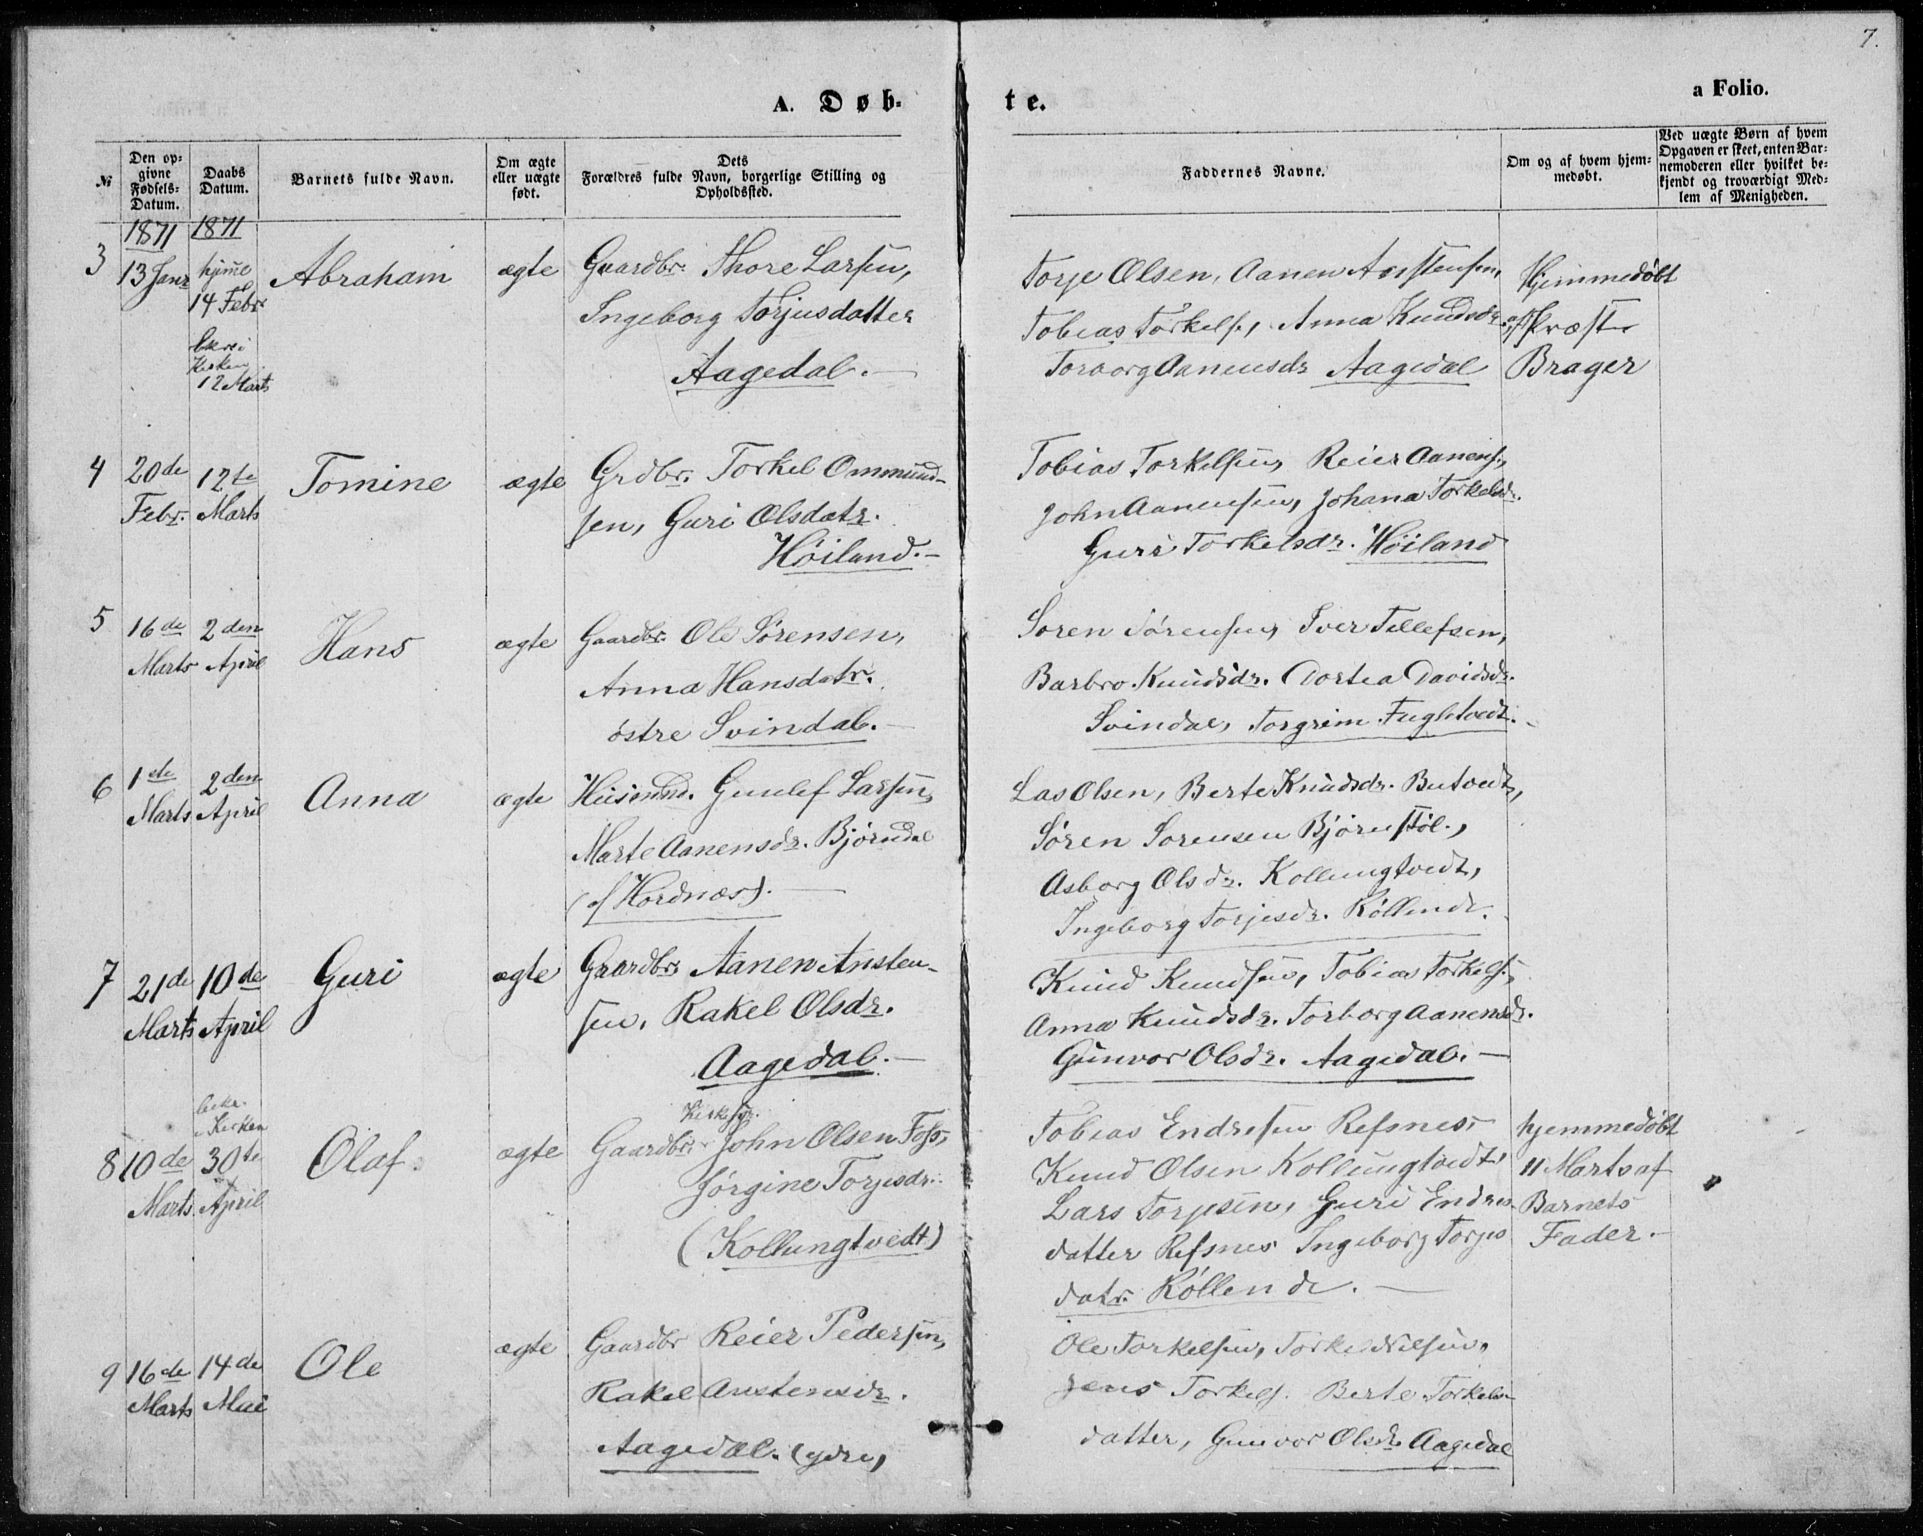 7.
A. Døb-
te.
a Folio.
№
Den op-
givne
Fødsels-
Datum.
Daabs
Datum.
Barnets fulde Navn.
Om ægte
eller uægte
født.
Dets
Forældres fulde Navn, borgerlige Stilling og
Opholdssted.
Faddernes Navne.
Om og af hvem hjem-
medøbt.
Ved uægte Børn af hvem
Opgaven er skeet, enten Bar-
nemoderen eller hvilket be-
kjendt og troværdigt Med-
lem af Menigheden.
1871
1871
3
13 Janr
hjme
14 Febr
Kirken
12 Marts
Abraham
ægte
Gaardbr. Thore Larsen,
Ingeborg Torjusdatter
Aagedal.
Torje Olsen, Aanen Anstensen,
Tobias Torkels., Anna Knudsdr.
Torborg Aanensdr Aagedal
Hjemmedøbt
af Præst
Brager
4
20de
Febr.
12te
Marts
Tomine
ægte
Grdbr. Torkel Ommund-
sen, Guri Olsdatr.
Høiland.
Tobias Torkelsen, Reier Aanens.,
John Aanensen, Johana Torkelsdr.
Guri Torkelsdr. Høiland
5
16de
Marts
2den
April
Hans
ægte
Gaardbr. Ole Sørensen,
Anna Hansdatr.
østre Svindal.
Søren Sørensen, Iver Tellefsen,
Barbro Knudsdr. Dortea Davidsdr.
Svindal, Torgrim Fugletvedt.
6
1ste
Marts
2den
April
Anna
ægte
Huismd. Gunlef Larsen,
Marte Aanensdr. Bjørndal
(af Hordnæs).
Las Olsen, Berte Knudsdr. Butvedt,
Søren Sørensen Bjørnstøl.,
Asborg Olsdr. Kollungtvedt,
Ingeborg Torjesdr. Røllend.
7
21de
Marts
10de
April
Guri
ægte
Gaardbr Aanen Ansten-
sen, Rakel Olsdr.
Aagedal.
Knud Knudsen, Tobias Torkels.,
Anna Knudsdr. Torborg Aanensdr.
Gunvor Olsdr. Aagedal.
8
10de
Marts
bekr.
i Kirken
30te
April
Olaf.
ægte
Gaardbr. John Olsen Foss,
Jørgine Torjesdr.
(Kollungtvedt)
Tobias Endresen Refsnes,
Knud Olsen Kollungtvedt,
Lars Torjesen, Guri Endres
datter Refsnes Ingeborg Torjes
datr. Røllend.
hjemmedøbt
11 Marts af
Barnets
Fader.
9
16de
Marts
14de
Mai
Ole
ægte
Gaardbr Reier Pedersen,
Rakel Anstensdr.
Aagedal. (ydre)
Ole Torkelsen, Torkel Nilsen,
Jens Torkels. Berte Torkels-
datter, Gunvor Olsdr. Aagedal